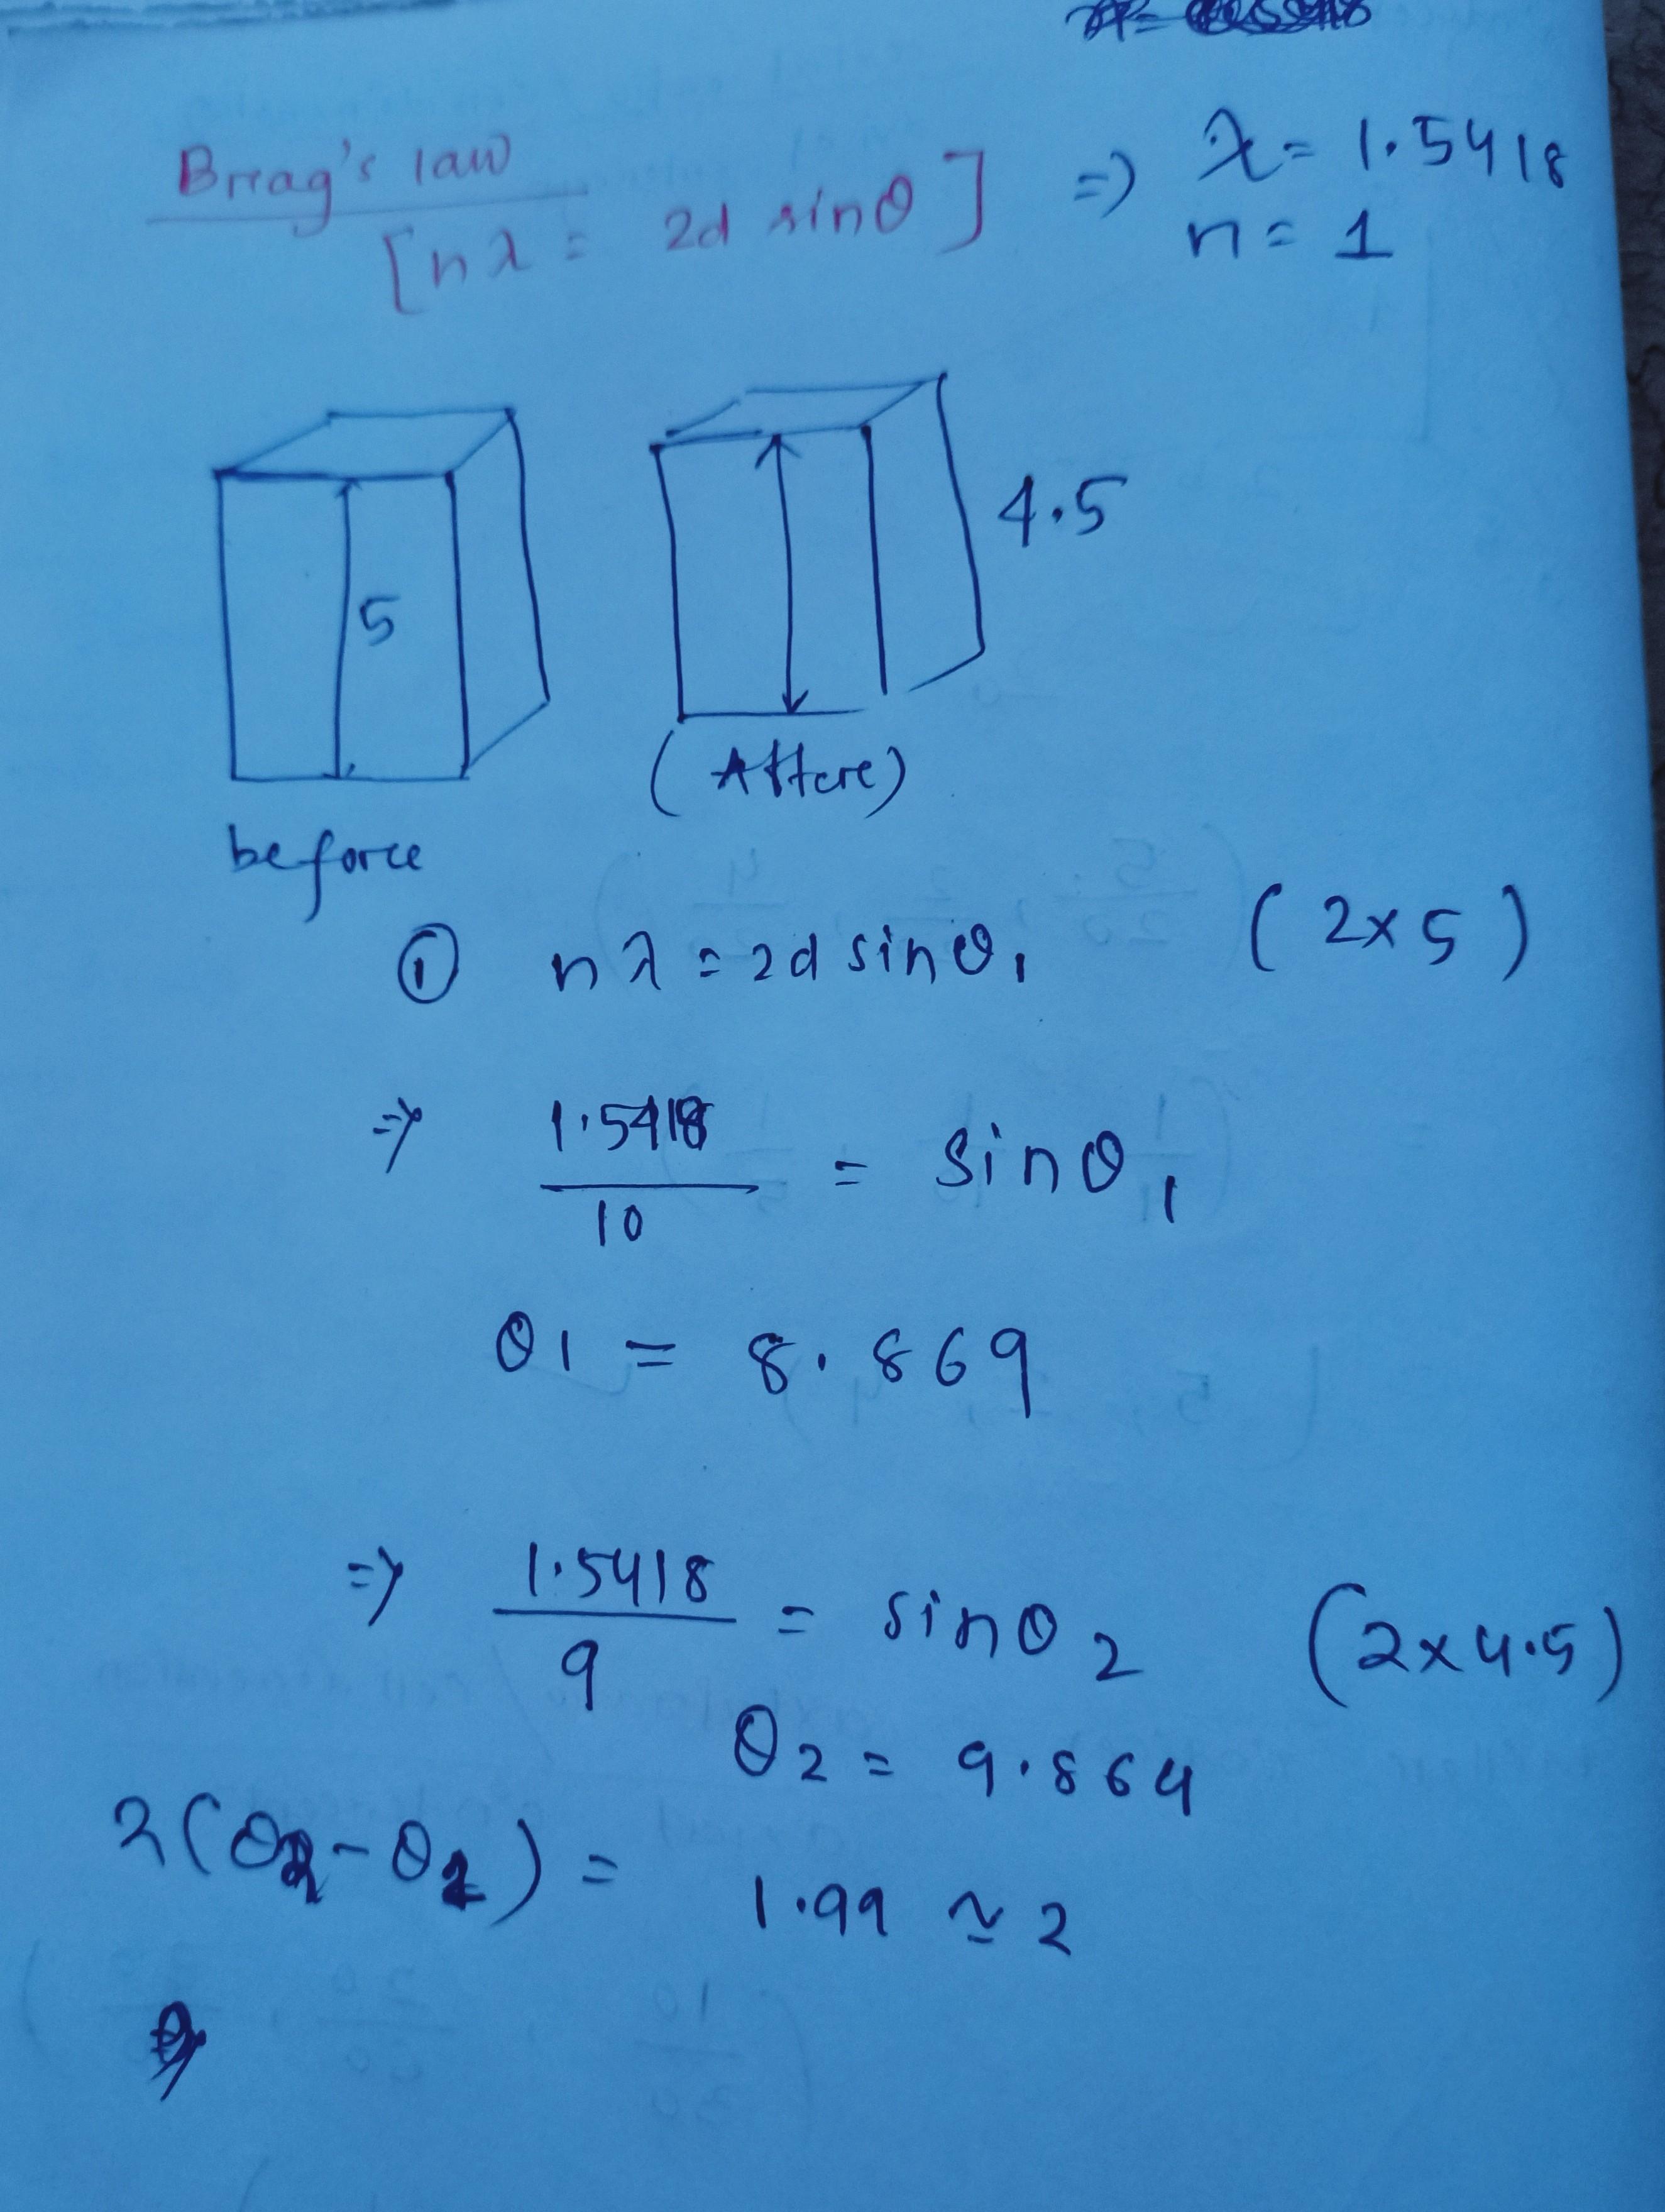 Brrag's law
[nλ = 2d sinθ] => λ = 1.5418
n = 1
5
4.5
(Aftere)
beforce
① nλ = 2d sinθ1 (2x5)
=> 1.5418/10 = sinθ1
θ1 = 8.869
=> 1.5418/9 = sinθ2 (2x4.5)
θ2 = 9.864
2(θ2-θ1) = 1.99 ≃ 2